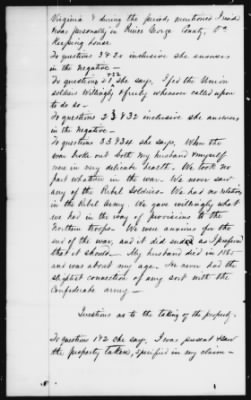 Virginia & during the period mentioned I resid
was personally in Prince George County, Va.
Keeping house
To questions 3 & 21 inclusive she answers
in the negative —
To questions 21 & 22 she says, I fed the Union
soldiers Willingly & freely whenever called upon
to do so —
To questions 23 & 32 inclusive she answers
in the negative —
To questions 33 & 34 she says, When the
war broke out both my husband & myself
were in very delicate health. We took no
part whatever in the war. We never saw
any of the Rebel Soldiers. We had no relation
in the Rebel Army. We gave willingly what
we had in the way of provisions to the
Northern troops. We were anxious for the
end of the war, and it did end as I prefered
that it should. — My husband died in 1865
and was about my age. He never had the
slightest connection of any sort with the
Confederate army —
Questions as to the taking of the property.
To question 1 & 2 she say, I was present & saw
the property taken, specified in my claim —